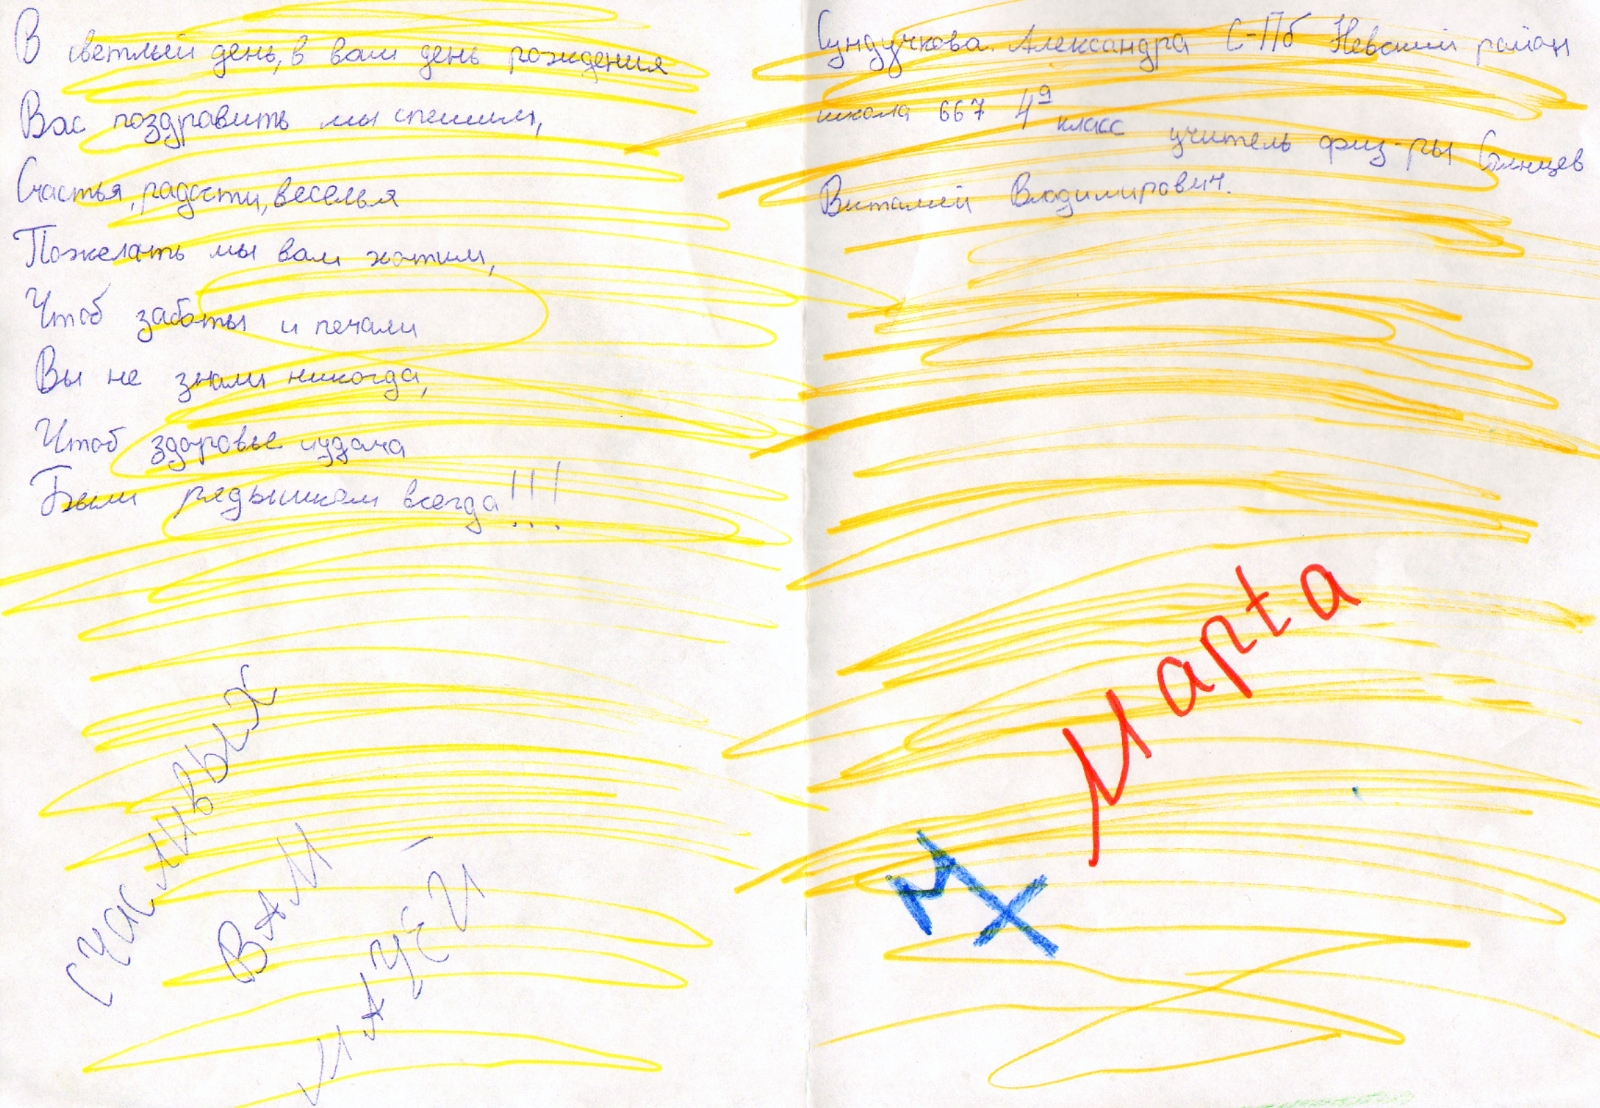 В светлый день, в вам день рождения
Вас поздравить мы спешим,
Счастья, радости, веселья
Пожелать мы вам хотим,
Чтоб заботы и печали
Вы не знали никогда,
Чтоб здоровье иудача
Были рядышком всегда!!!
счасливых
ВАМ
Сундучкова. Александра С-Пб Невский район
школа 667 4а класс учитель физ-ры
Виталий Владимирович.
Марта